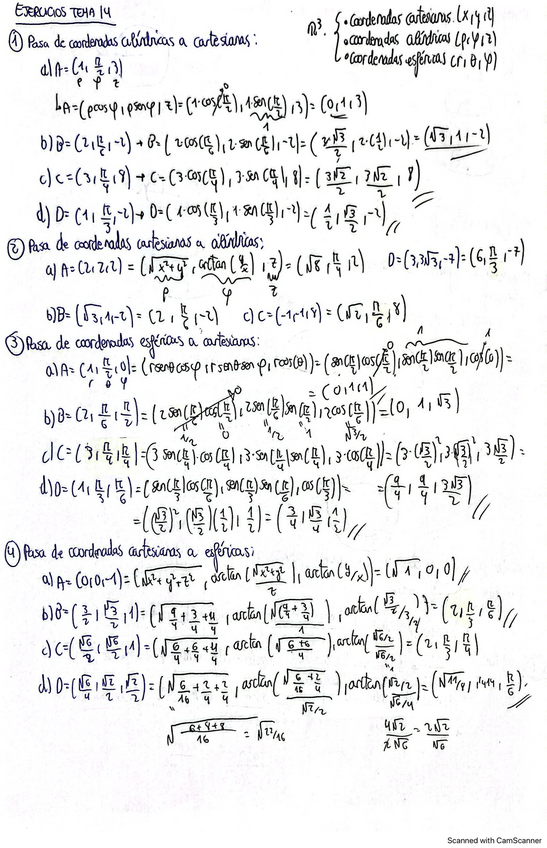 EJERCICIOS TEMA 14
R³. { • coordenadas cartesianas (x,y,z)
• coordenadas cilíndricas (ρ,φ,z)
• coordenadas esféricas (r,θ,φ)
① Pasa de coordenadas cilíndricas a cartesianas:
a) A=(1, π/2, 3)
ρ φ z
↳ A=(ρcosφ, ρsenφ, z)=(1·cos(π/2), 1·sen(π/2), 3)=(0,1,3)
b) B=(2, π/6, -2) → B=(2cos(π/6), 2·sen(π/6), -2)=(2√3/2, 2·(1/2), -2)=(√3, 1, -2)
c) C=(3, π/4, 8) → C=(3·cos(π/4), 3·sen(π/4), 8)=(3√2/2, 3√2/2, 8)
d) D=(1, π/3, -2) → D=(1·cos(π/3), 1·sen(π/3), -2)=(1/2, √3/2, -2)
② Pasa de coordenadas cartesianas a cilíndricas:
a) A=(2,2,2)=(√x²+y², arctan(y/x), z)=(√8, π/4, 2) D=(3,3√3,-7)=(6, π/3, -7)
ρ φ z
b) B=(√3,1,-2)=(2, π/6, -2) c) C=(-1,-1,8)=(√2, π/6, 8)
③ Pasa de coordenadas esféricas a cartesianas:
a) A=(1, π/2, 0)=(rsenθcosφ, rsenθsenφ, rcos(θ))=(sen(π/2)cos(π/2), sen(π/2)sen(π/2), cos(0))=
r θ φ
=(0,1,1)
b) B=(2, π/6, π/2)=(2sen(π/6)cos(π/2), 2sen(π/6)sen(π/2), 2cos(π/6))=(0, 1, √3)
1/2 0 1/2 1 √3/2
c) C=(3, π/4, π/4)=(3sen(π/4)·cos(π/4), 3·sen(π/4)sen(π/4), 3·cos(π/4))=(3·(√3/2)², 3(√3/2)², 3√3/2)=
=(9/4, 9/4, 3√3/2)
d) D=(1, π/3, π/6)=(sen(π/3)cos(π/6), sen(π/3)sen(π/6), cos(π/3))=
=((√3/2)², (√3/2)(1/2), 1/2)=(3/4, √3/4, 1/2)
④ Pasa de coordenadas cartesianas a esféricas:
a) A=(0,0,-1)=(√x²+y²+z², arctan(√x²+y²/z), arctan(y/x))=(√1, 0, 0)
b) B=(3/2, √3/2, 1)=(√9/4+3/4+4/4, arctan(√(9/4+3/4)/1), arctan(√3/2/3/2))=(2, π/3, π/6)
c) C=(√6/2, √6/2, 1)=(√6/4+6/4+4/4, arctan(√6+6/4), arctan(√6/2/√6/2))=(2, π/3, π/4)
d) D=(√6/4, √2/2, √2/2)=(√6/16+2/4+2/4, arctan(√6/16+2/4/√2/2), arctan(√2/2/√6/4))=(√11/4, 1'414, π/6).
√6+8+8/16=√22/16
4√2/2√6=2√2/√6
Scanned with CamScanner